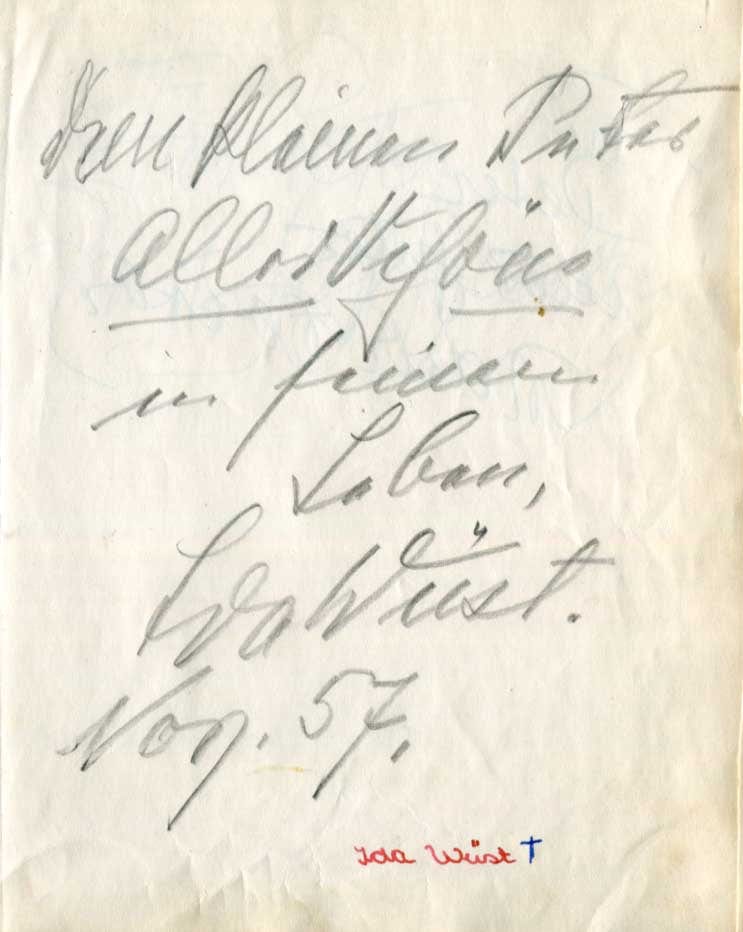 Dem kleinen Peter
alles Schöne
in seinem
Leben,
Ida Wüst.
Nov. 57.
Ida Wüst †